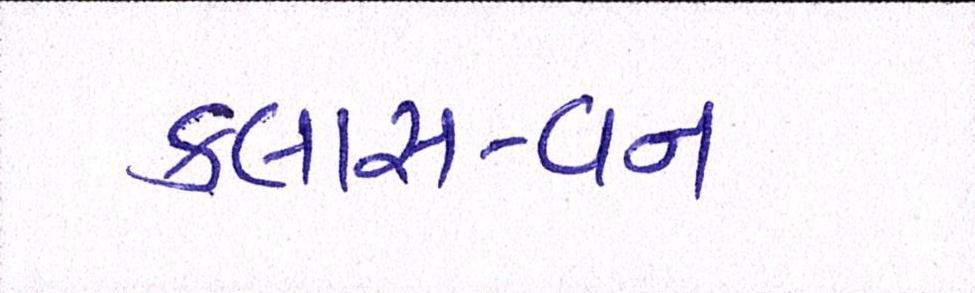 કલાસ-વન